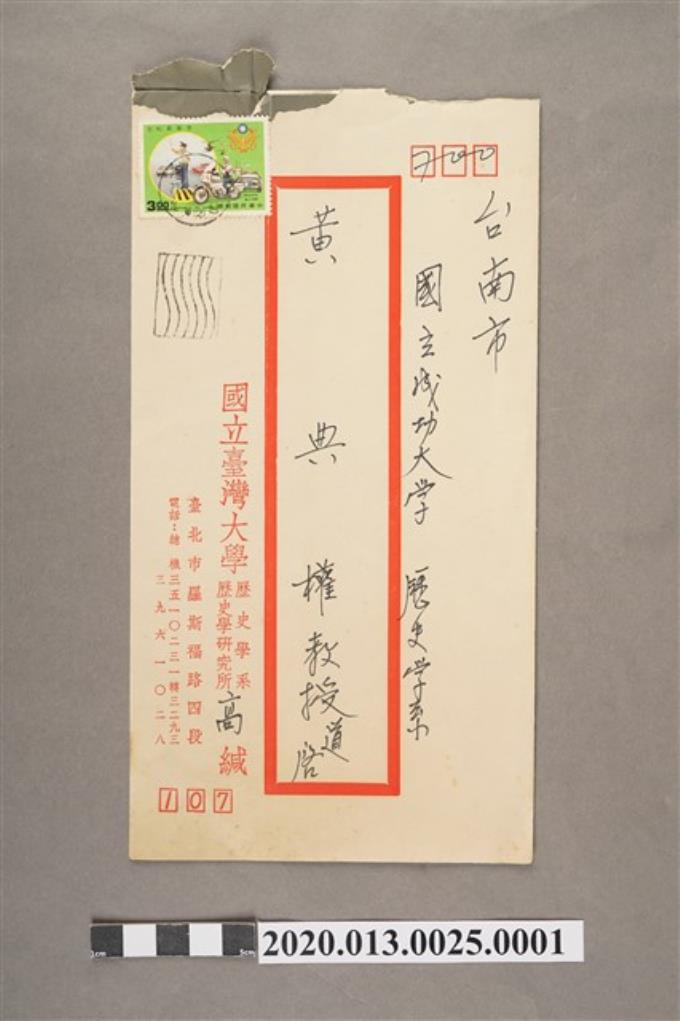 台南市
國立成功大学 歷史学系
黃典權教授道啓
國立臺灣大學
歷史學系
歷史學研究所
高緘
臺北市羅斯福路四段
電話：總機三五一〇二三一轉三二九三
三九六一〇二八
107
3.00
2020.013.0025.0001
0cm
5cm